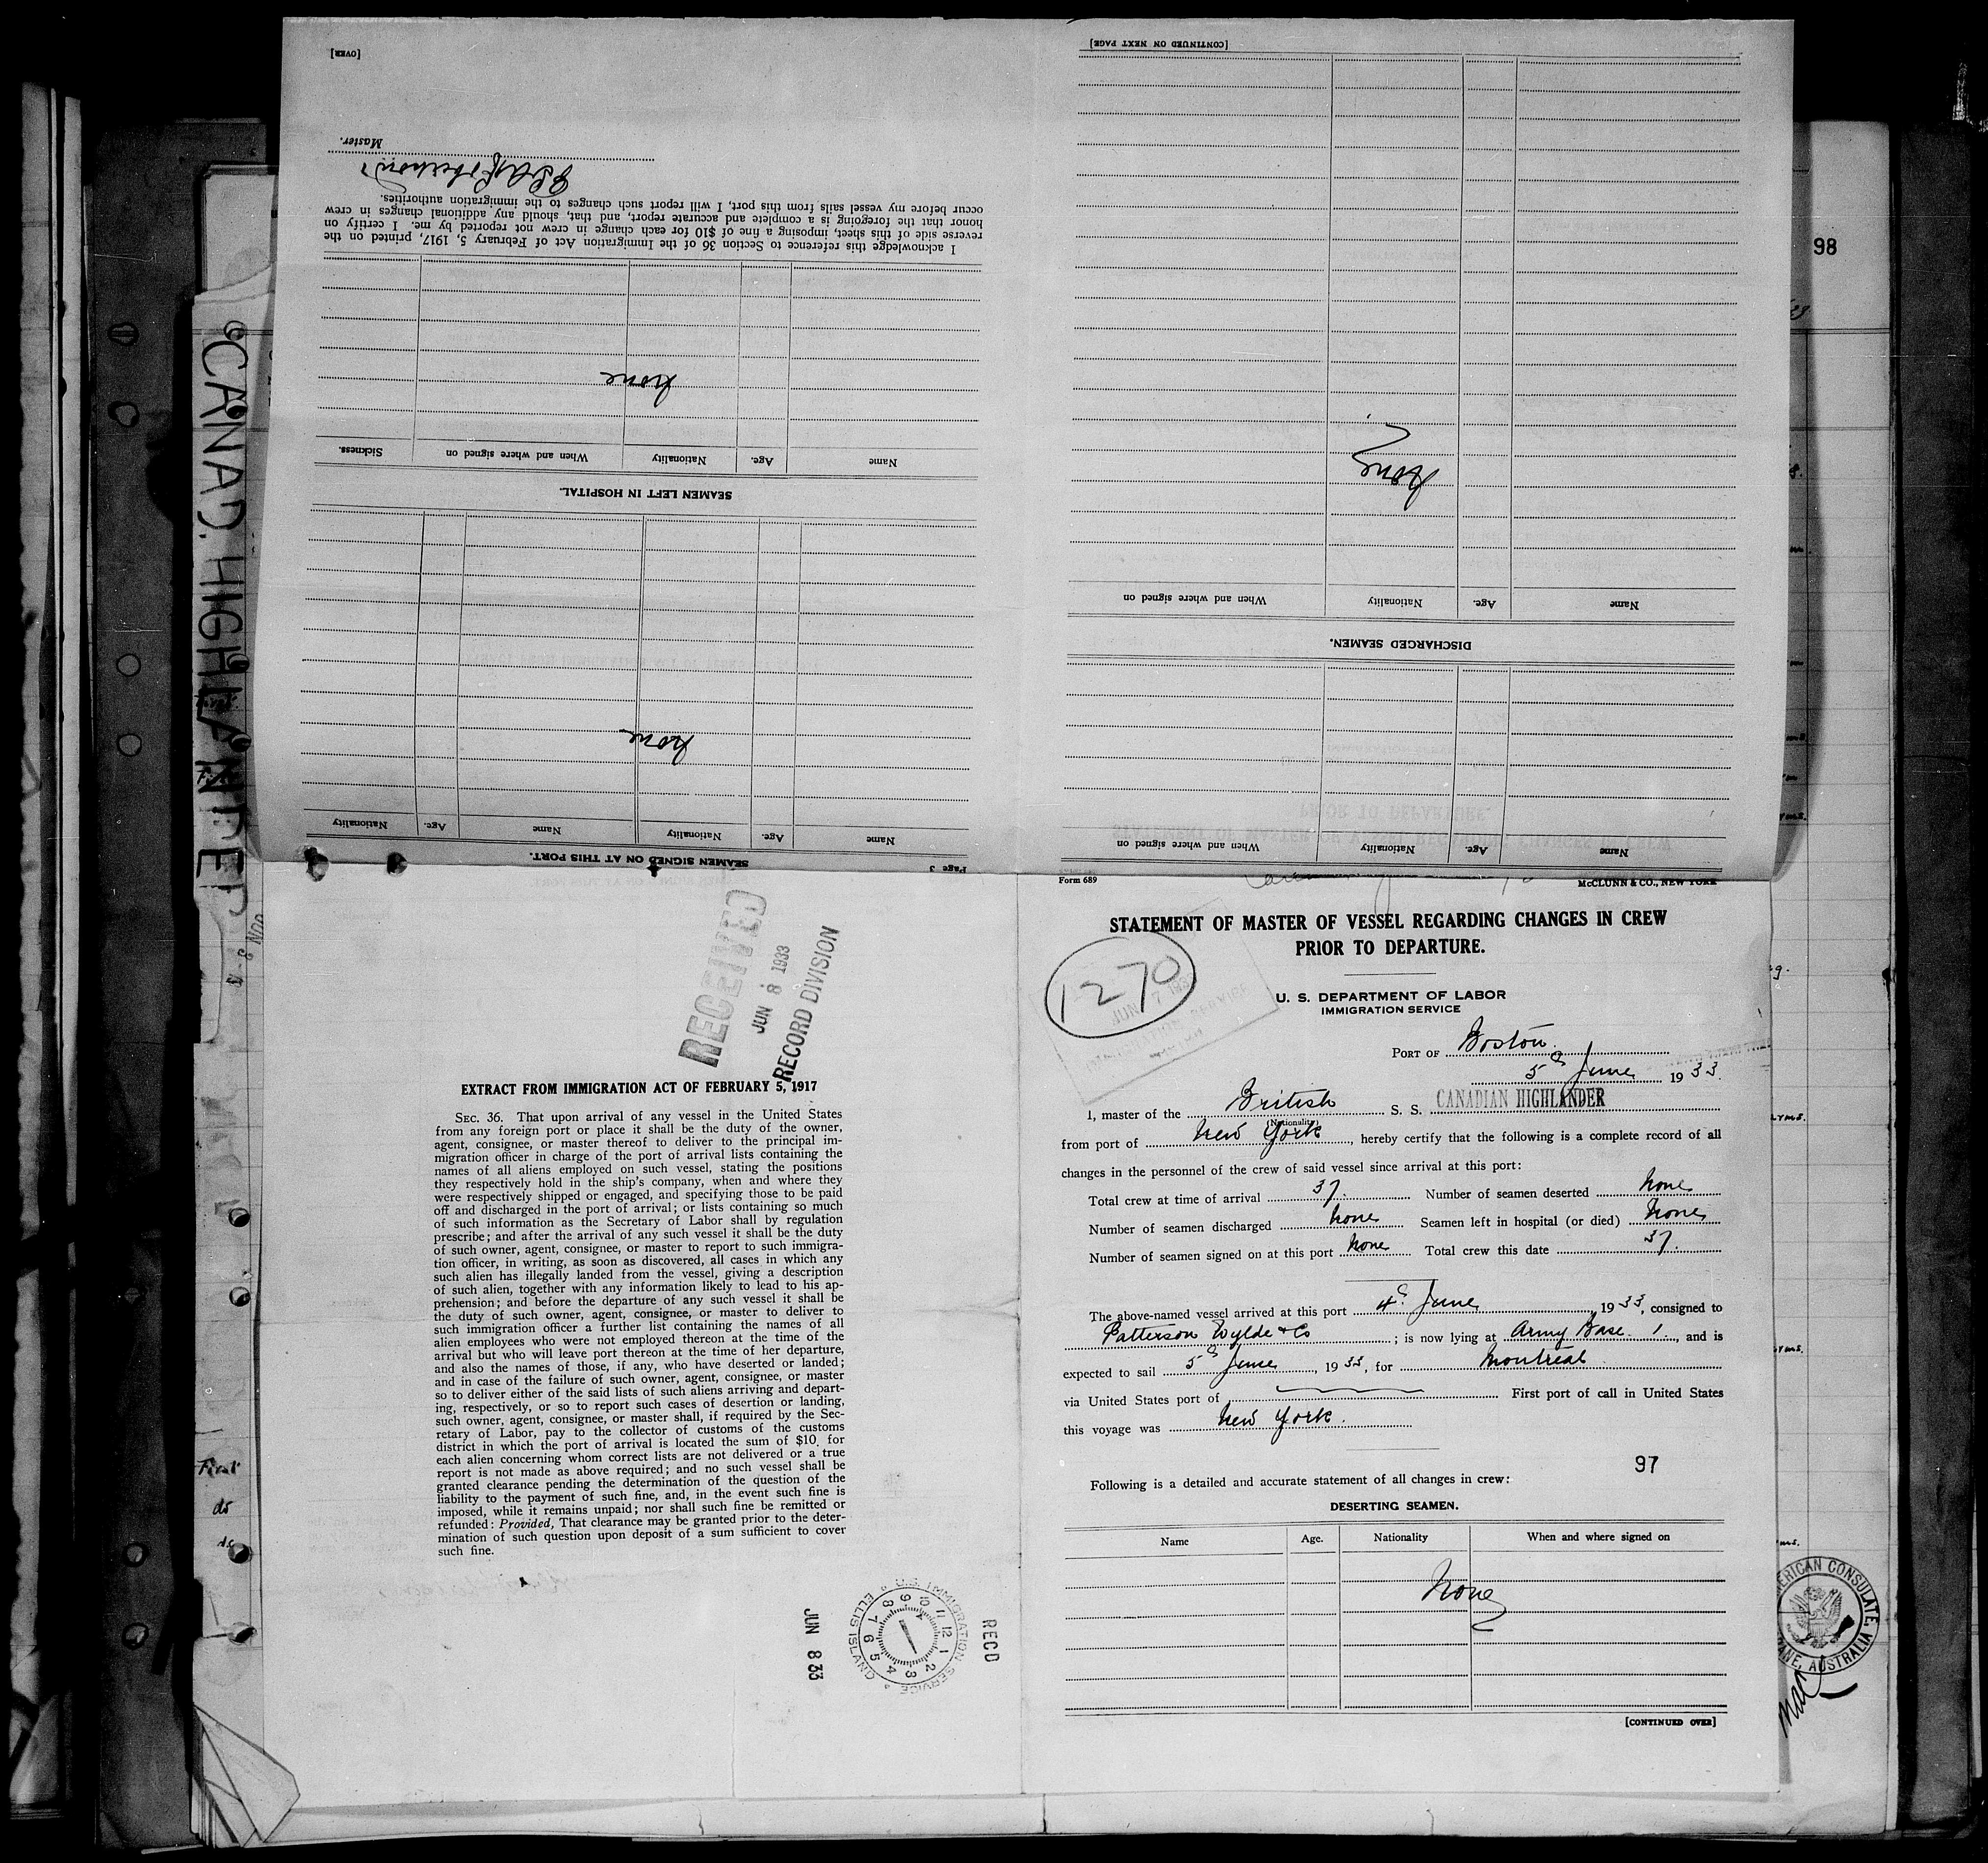 [OVER]
Master.
I acknowledge this reference to Section 36 of the Immigration Act of February 5, 1917, printed on the
reverse side of this sheet, imposing a fine of $10 for each change in crew not reported by me. I certify on
honor that the foregoing is a complete and accurate report, and that, should any additional changes in crew
occur before my vessel sails from this port, I will report such changes to the immigration authorities.
none
Name Age. Nationality When and where signed on Sickness.
SEAMEN LEFT IN HOSPITAL.
none
Name Age. Nationality Name Age. Nationality
SEAMEN SIGNED ON AT THIS PORT.
Page 3
[CONTINUED ON NEXT PAGE]
None
Name Age. Nationality When and where signed on
DISCHARGED SEAMEN.
Name Age. Nationality When and where signed on
98
CANAD. HIGHLANDER
RECEIVED
JUN 8 1933
RECORD DIVISION
EXTRACT FROM IMMIGRATION ACT OF FEBRUARY 5, 1917
SEC. 36. That upon arrival of any vessel in the United States
from any foreign port or place it shall be the duty of the owner,
agent, consignee, or master thereof to deliver to the principal im-
migration officer in charge of the port of arrival lists containing the
names of all aliens employed on such vessel, stating the positions
they respectively hold in the ship's company, when and where they
were respectively shipped or engaged, and specifying those to be paid
off and discharged in the port of arrival; or lists containing so much
of such information as the Secretary of Labor shall by regulation
prescribe; and after the arrival of any such vessel it shall be the duty
of such owner, agent, consignee, or master to report to such immigra-
tion officer, in writing, as soon as discovered, all cases in which any
such alien has illegally landed from the vessel, giving a description
of such alien, together with any information likely to lead to his ap-
prehension; and before the departure of any such vessel it shall be
the duty of such owner, agent, consignee, or master to deliver to
such immigration officer a further list containing the names of all
alien employees who were not employed thereon at the time of the
arrival but who will leave port thereon at the time of her departure,
and also the names of those, if any, who have deserted or landed;
and in case of the failure of such owner, agent, consignee, or master
so to deliver either of the said lists of such aliens arriving and depart-
ing, respectively, or so to report such cases of desertion or landing,
such owner, agent, consignee, or master shall, if required by the Sec-
retary of Labor, pay to the collector of customs of the customs
district in which the port of arrival is located the sum of $10. for
each alien concerning whom correct lists are not delivered or a true
report is not made as above required; and no such vessel shall be
granted clearance pending the determination of the question of the
liability to the payment of such fine, and, in the event such fine is
imposed, while it remains unpaid; nor shall such fine be remitted or
refunded: Provided, That clearance may be granted prior to the deter-
mination of such question upon deposit of a sum sufficient to cover
such fine.
JUN 8 33
U.S. IMMIGRATION SERVICE ELLIS ISLAND
RECD
Form 689
McCLUNN & CO., NEW YORK
STATEMENT OF MASTER OF VESSEL REGARDING CHANGES IN CREW
PRIOR TO DEPARTURE.
1270
U. S. DEPARTMENT OF LABOR
IMMIGRATION SERVICE
PORT OF Boston
5th June 1933.
I, master of the British S. S. CANADIAN HIGHLANDER
(Nationality)
from port of New York, hereby certify that the following is a complete record of all
changes in the personnel of the crew of said vessel since arrival at this port:
Total crew at time of arrival 37. Number of seamen deserted None
Number of seamen discharged None Seamen left in hospital (or died) None
Number of seamen signed on at this port None Total crew this date 37.
The above-named vessel arrived at this port 4th June 1933, consigned to
Patterson Wylde & Co; is now lying at Army Base 1, and is
expected to sail 5th June, 1933, for Montreal
via United States port of First port of call in United States
this voyage was New York.
97
Following is a detailed and accurate statement of all changes in crew:
DESERTING SEAMEN.
Name Age. Nationality When and where signed on
None
[CONTINUED OVER]
First
do
do
AMERICAN CONSULATE, AUSTRALIA